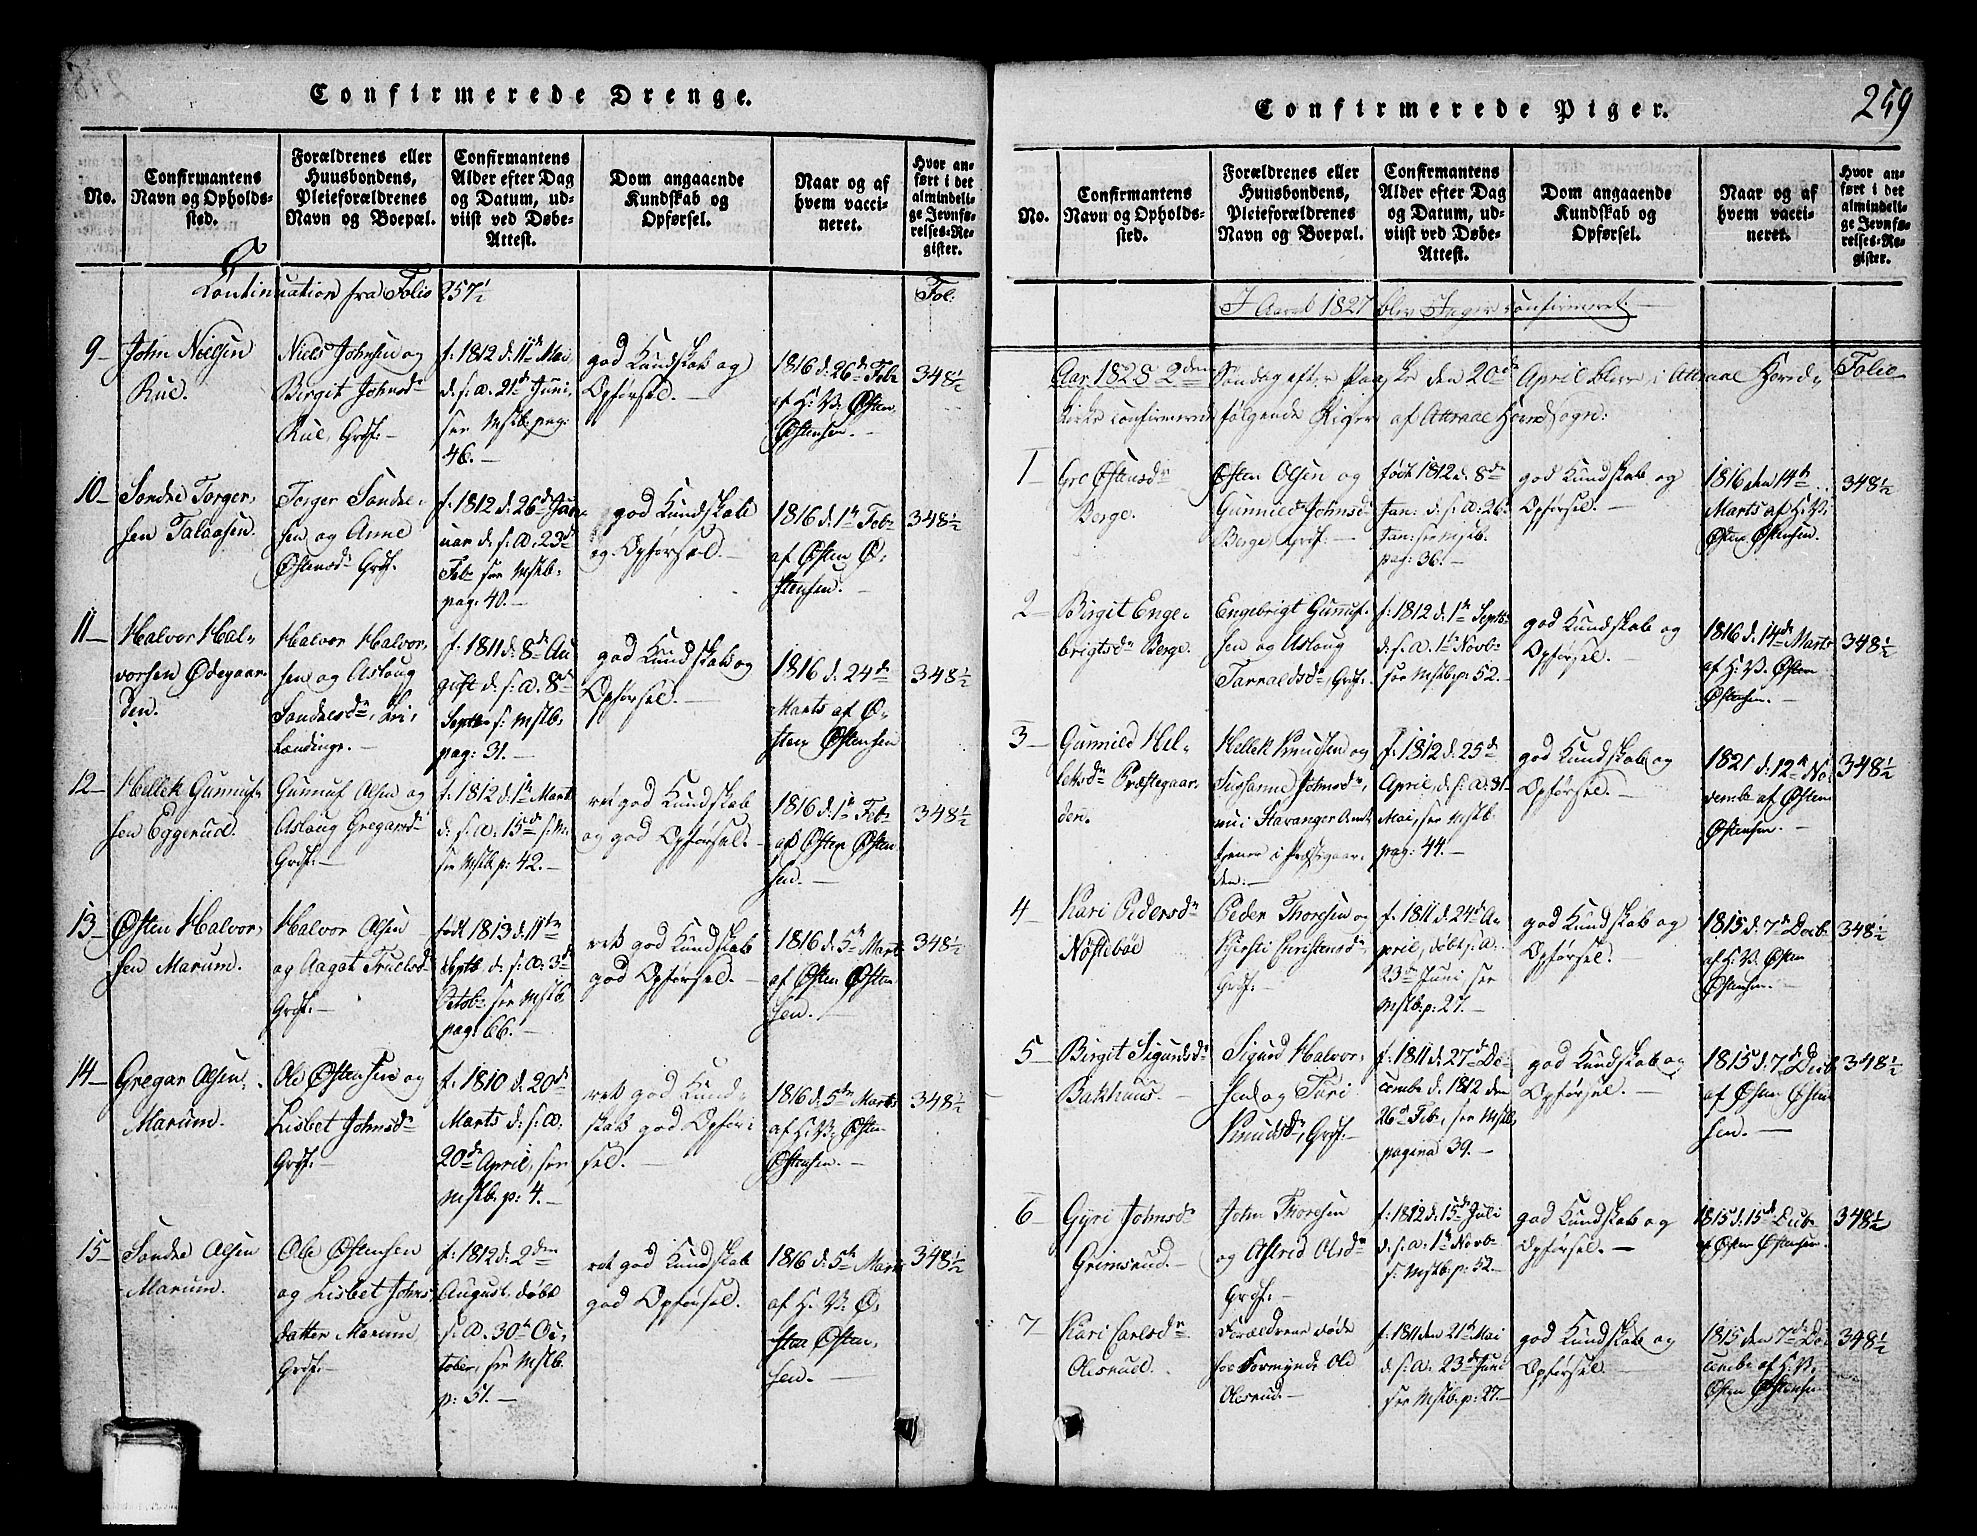 Confirmerede Drenge.
No.
Confirmantens
Navn og Opholds-
sted.
Forældrenes eller
Huusbondens,
Pleieforældrenes
Navn og Boepæl.
Confirmantens
Alder efter Dag
og Datum, ud-
viist ved Døbe-
Attest.
Dom angaaende
Kundskab og
Opførsel.
Naar og af
hvem vacci-
neret.
Hvor an-
ført i det
almindeli-
ge Jevnfø-
relses-Re-
gister.
Continuation fra Folio 257½
Fol.
9
John Nielsen
Rue.
Niels Johnsen og
Birgit Johnsdr
Rue, Grdf.
f. 1812 d. 11te Mai
d. s. a. 21de Juni,
see Mstb. pag.
46.
god Kundskab og
Opførsel.
1816 d. 26de Feb
af H. V. Østen
Østensen.
348½
10
Sondre Torger-
sen Talaasen.
Torger Sondre-
sen og Anne
Østensdr Grdf.
f. 1812 d. 26de Jan-
uar d. s. a. 23de
Feb see Mstb.
pag. 40.
god Kundskab
og Opførsel.
1816 d. 1te Feb
af Østen Ø-
stensen.
348½
11
Halvor Hal-
vorsen Ødegaar-
den.
Halvor Halvor-
sen og Aslaug
Sondresdr,
f. 1811 d. 8de Au-
gust d. s. a. 8de
Septb s. Mstb.
pag: 31.
god Kundskab og
Opførsel.
1816 d. 24de
Marts af Ø-
sten Østensen
348½
12
Hellek Gunnuf-
sen Eggerud.
Gunnuf Olsen og
Aslaug Gregarsdr
Grdf.
f. 1812 d. 1te Marts
d. s. a. 15de s. M.
see Mstb. p: 42.
ret god Kundskab
og god Opførsel.
1816 d. 1te Feb
af Østen Østen-
sen.
348½
13
Østen Halvor-
sen Marum.
Halvor Olsen
og Aagot Truelsdr
Grdf.
født 1813 d. 11te
Septb d. s. a. 3de
Octob. see Mstb.
pag: 66.
ret god Kundskab
god Opførsel.
1816 d. 5te Marts
af Østen Østen-
sen.
348½
14
Gregar Olsen
Marum.
Ole Østensen og
Lisbet Johnsdr
Grdf.
f. 1810 d. 20de
Marts d. s. a.
20de April, see
Mstb. p: 4.
ret god Kund-
skab god Opfør-
sel.
1816 d. 5te Marts
af H. V. Østen
Østensen.
348½
15
Sondre Olsen
Marum.
Ole Østensen
og Lisbet Johns-
datter Marum
Grdf.
f. 1812 d. 2den
August, døbt
s. a. 30te Oc-
tober, see Mstb.
p: 51.
ret god Kundskab
god Opførsel.
1816 d. 5te Marts
af H. V. Ø-
sten Østen-
sen.
348½
Confirmerede Piger.
259
No.
Confirmantens
Navn og Opholds-
sted.
Forældrenes eller
Huusbondens,
Pleieforældrenes
Navn og Boepæl.
Confirmantens
Alder efter Dag
og Datum, ud-
viist ved Døbe-
Attest.
Dom angaaende
Kundskab og
Opførsel.
Naar og af
hvem vacci-
neret.
Hvor an-
ført i det
almindeli-
ge Jevnfø-
relses-Re-
gister.
I Aaret 1827 blev Ingen confirmeret.
Aar 1828 2den Søndag efter Paaske den 20de April bleve i Attraae Hoved- Folio
Kirke confirmerede følgende Piger af Attraae Hoved Sogn:
1
Gro Østensdr
Berge.
Østen Olsen og
Gunnild Johnsdr
Berge, Grdf.
født 1812 d. 8de
Jan: d. s. a. 26de
Jan: see Mstb.
pag: 36.
god Kundskab og
Opførsel.
1816 den 14de
Marts af H. V.
Østen Østensen.
348½
2
Birgit Enge-
brigtsdr Berge.
Engebrigt Gunnuf-
sen og Aslaug
Tarraldsdr, Grdf.
f. 1812 d. 1te Septb
d. s. a. 1te Novb
see Mstb. p: 52.
god Kundskab og
Opførsel.
1816 d. 14de Marts
af H. V. Østen
Østensen.
348½
3
Gunnild Hel-
leksdr Præstegaar-
den.
Hellek Knudsen og
Susanne Johnsdr,
nu i Stavanger Amt
tjener i Præstegaar-
den.
f. 1812 d. 25de
April, d. s. a. 31
Mai, see Mstb.
pag: 44.
god Kundskab og
Opførsel.
1821 d. 12te No-
vembr af Østen
Østensen.
348½
4
Kari Pedersdr
Nøstebøe
Peder Thoresen og
Kjersti Christensdr
Grdf.
f. 1811 d. 24de A-
pril, døbt s. a.
23de Juni see
Mstb. p: 27.
god Kundskab og
Opførsel.
1815 d. 7de Decb
af H. V. Østen
Østensen.
348½
5
Birgit Sigurdsdr
Bakhuus.
Sigurd Halvor-
sen og Turi
Knudsdr, Grdf.
f. 1811 d. 27de De-
cembr d. 1812 den
26de Feb, see Mstb.
pagina 39.
god Kundskab og
Opførsel.
1815 d. 7de Decb
af Østen Østen-
sen.
348½
6
Gyri Johnsdr
Grimsrud.
John Thoresen
og Astrid Olsdr
Grdf.
f. 1812 d. 15de Juli
d. s. a. 1te Novb
s. Mstb. p: 52.
god Kundskab og
Opførsel.
1815 d. 15de Decb
af Østen Østensen.
348½
7
Kari Carlsdr
Olesrud.
Forældrene døde
hos Formynder Ole
Olesrud.
f. 1811 den 21de Mai
d. s. a. 23de Juni
see Mstb. p: 27.
god Kundskab og
Opførsel.
1815 den 7de De-
cembr af H. V.
Østen Østensen
348½